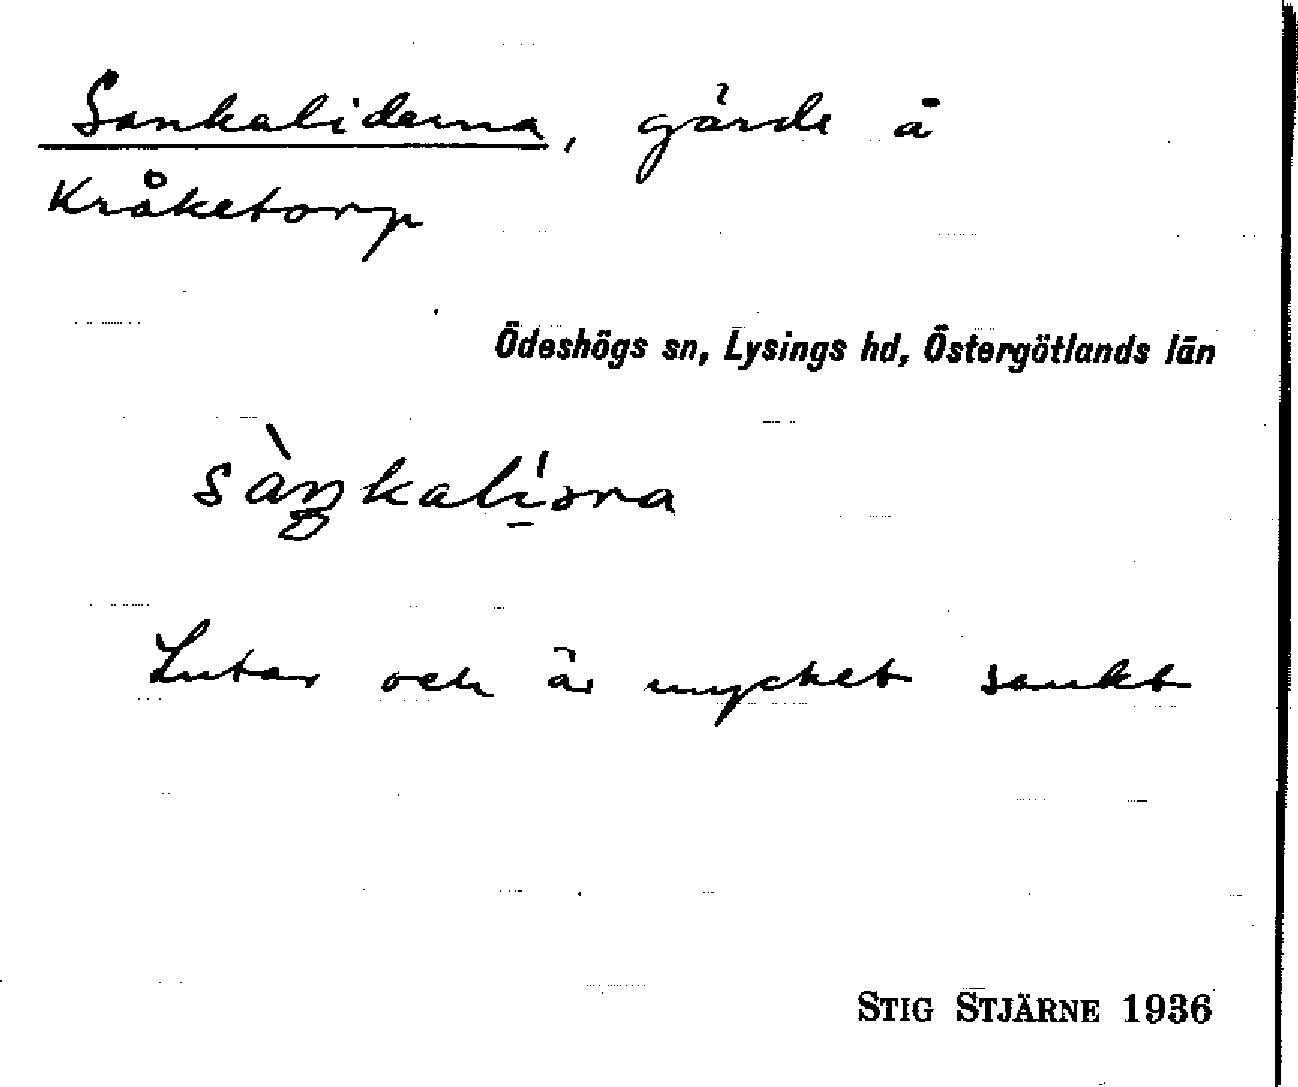 Sankaliderna, gärde å
Kråketorp
Ödeshögs sn, Lysings hd, Östergötlands län
sàŋkali̱ᵊna
Lutar och är mycket sankt
STIG STJÄRNE 1936